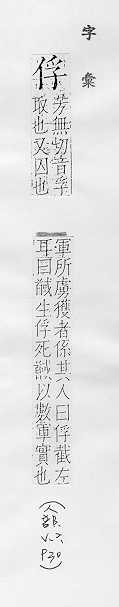 字彙
俘
芳無切音孚
取也又囚也
軍所虜獲者係其人曰俘截左
耳曰馘生俘死馘以數軍實也
(人部
P30)